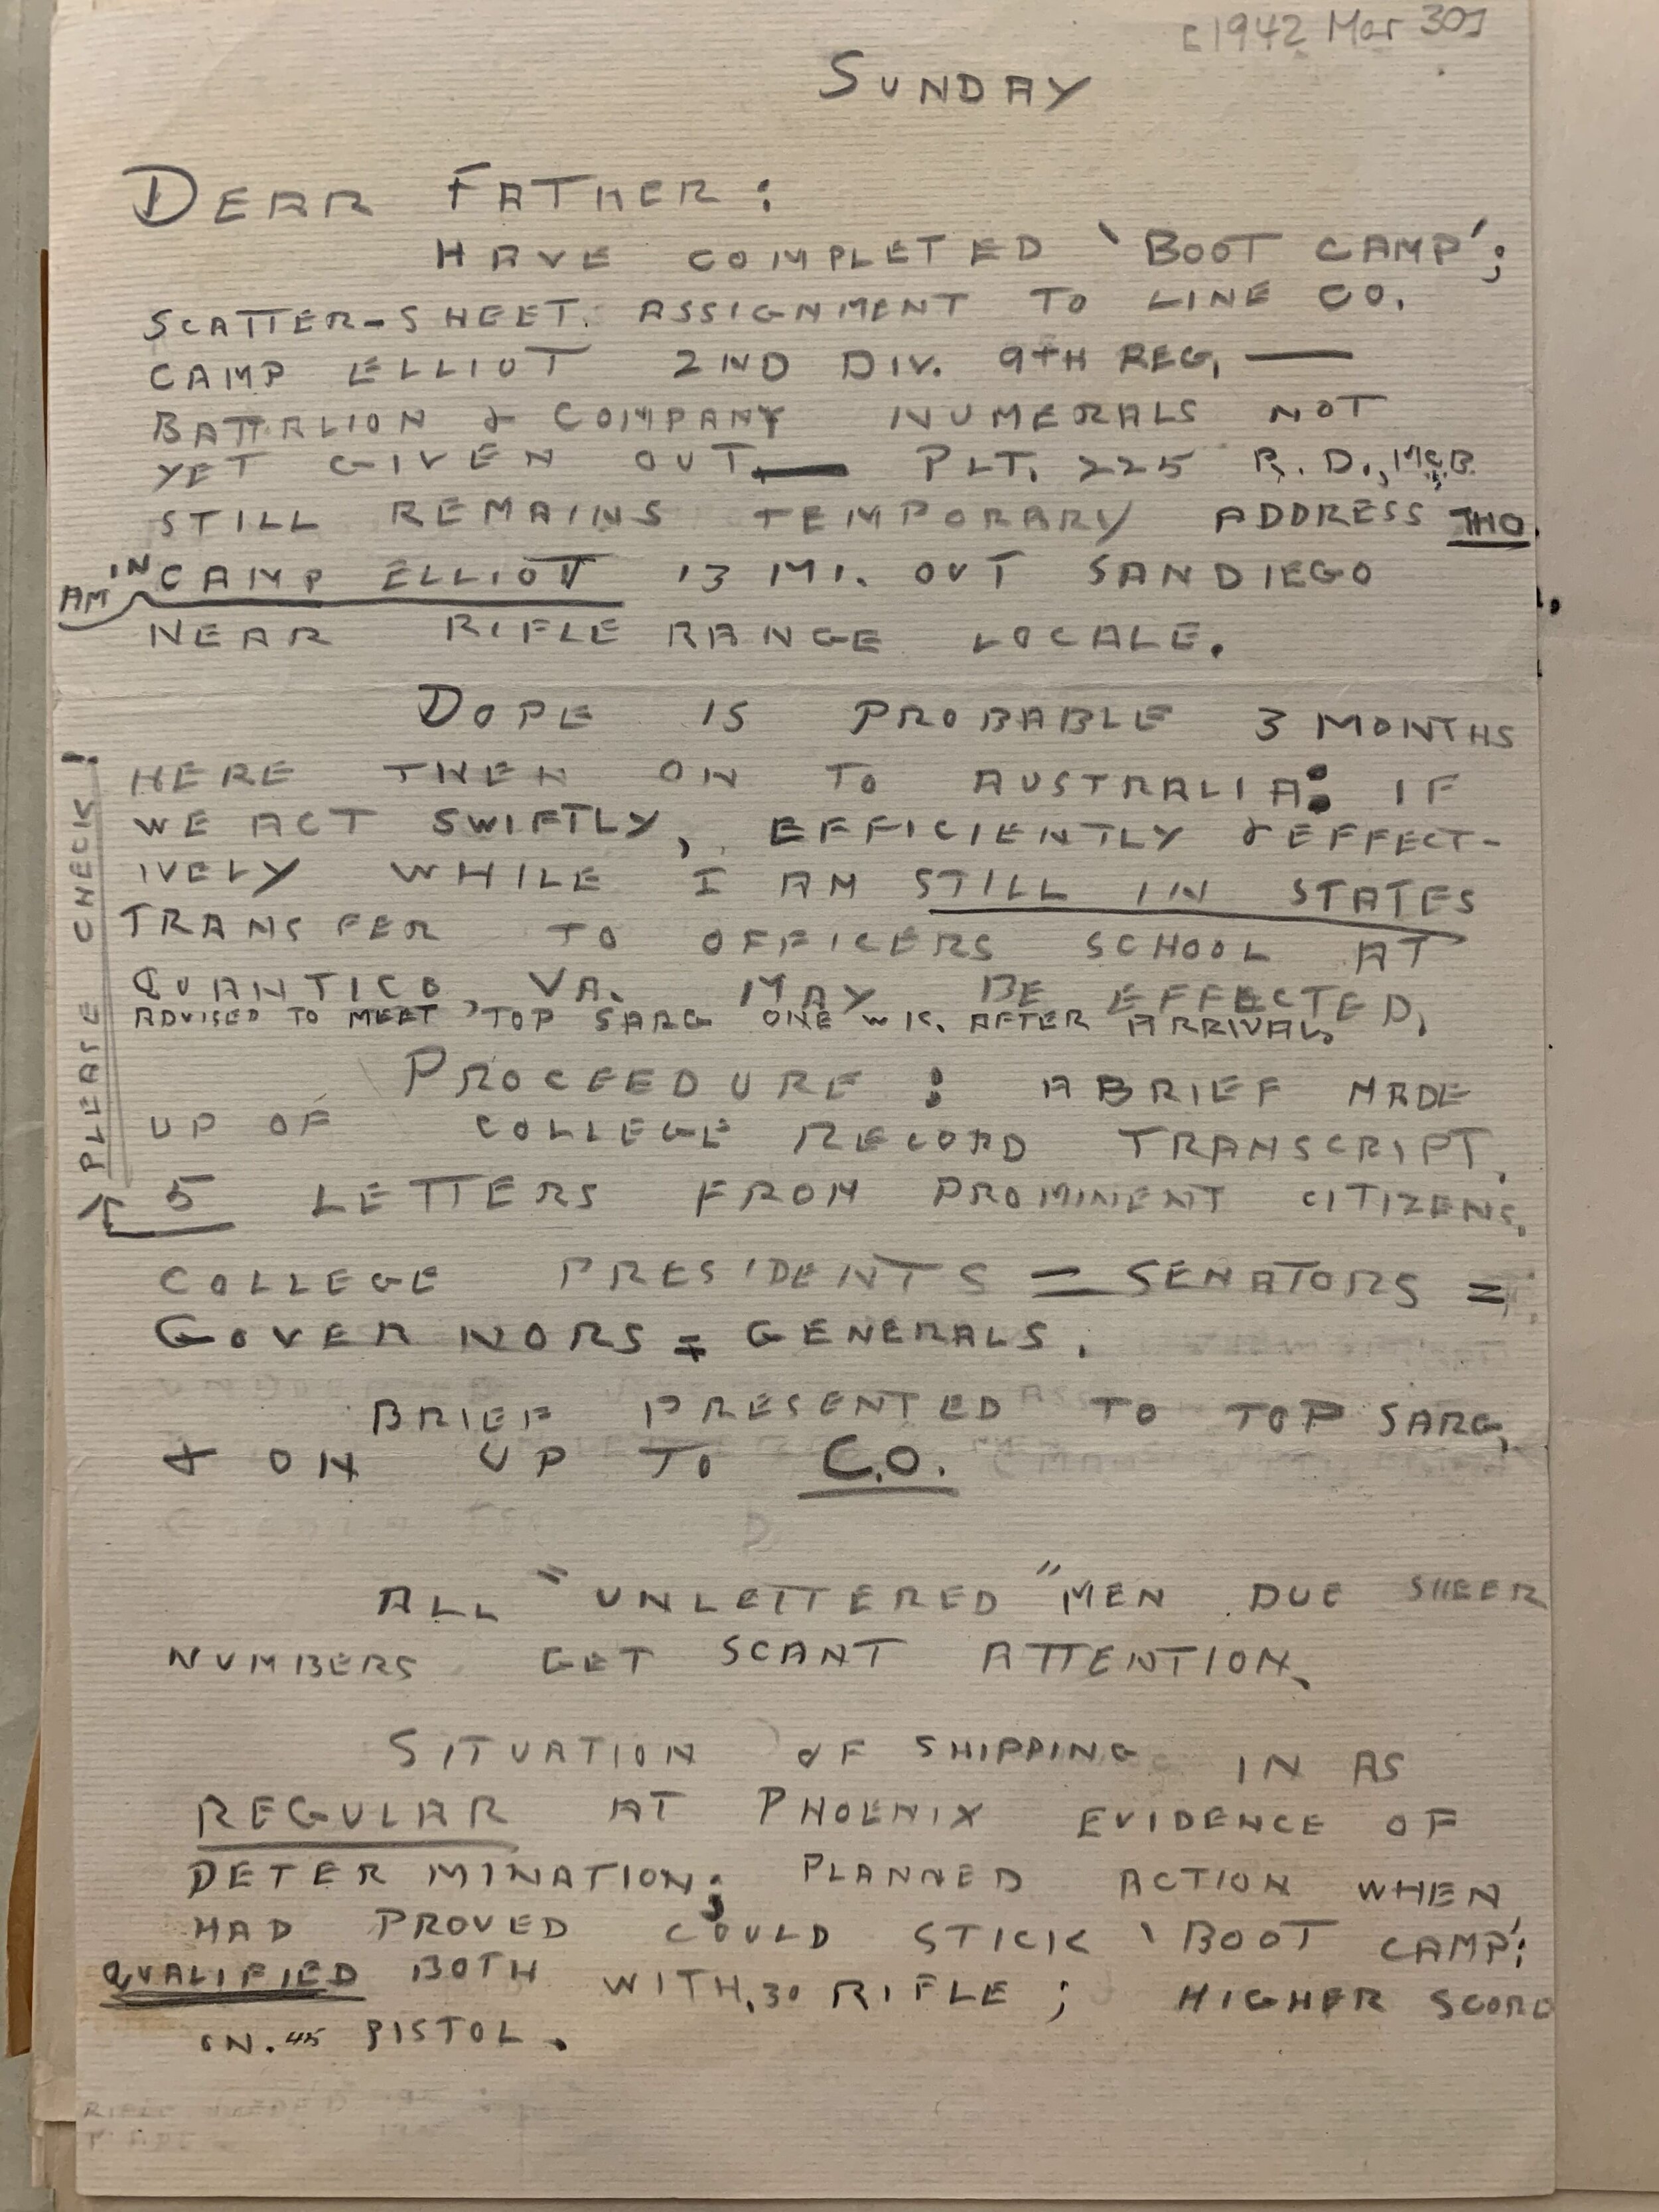 [1942 Mar 30]
SUNDAY
DEAR FATHER:
HAVE COMPLETED 'BOOT CAMP';
SCATTER-SHEET. ASSIGNMENT TO LINE CO.
CAMP ELLIOT 2ND DIV. 9TH REG, —
BATTALION & COMPANY NUMERALS NOT
YET GIVEN OUT — PLT. 225 R.D., MCB.
STILL REMAINS TEMPORARY ADDRESS THO.
AM IN CAMP ELLIOT 13 MI. OUT SAN DIEGO
NEAR RIFLE RANGE LOCALE.
DOPE IS PROBABLE 3 MONTHS
HERE THEN ON TO AUSTRALIA: IF
WE ACT SWIFTLY, EFFICIENTLY & EFFECT-
IVELY WHILE I AM STILL IN STATES
TRANSFER TO OFFICERS SCHOOL AT
QUANTICO VA. MAY BE EFFECTED,
ADVISED TO MEET 'TOP SARG ONE WK. AFTER ARRIVAL.
PROCEEDURE: A BRIEF MADE
UP OF COLLEGE RECORD TRANSCRIPT,
5 LETTERS FROM PROMINENT CITIZENS,
PLEASE CHECK!
COLLEGE PRESIDENTS = SENATORS =
GOVERNORS = GENERALS.
BRIEF PRESENTED TO TOP SARG,
& ON UP TO C.O.
ALL "UNLETTERED" MEN DUE SHEER
NUMBERS GET SCANT ATTENTION.
SITUATION OF SHIPPING IN AS
REGULAR AT PHOENIX EVIDENCE OF
DETERMINATION; PLANNED ACTION WHEN
HAD PROVED COULD STICK 'BOOT CAMP';
QUALIFIED BOTH WITH .30 RIFLE; HIGHER SCORE
ON .45 PISTOL.